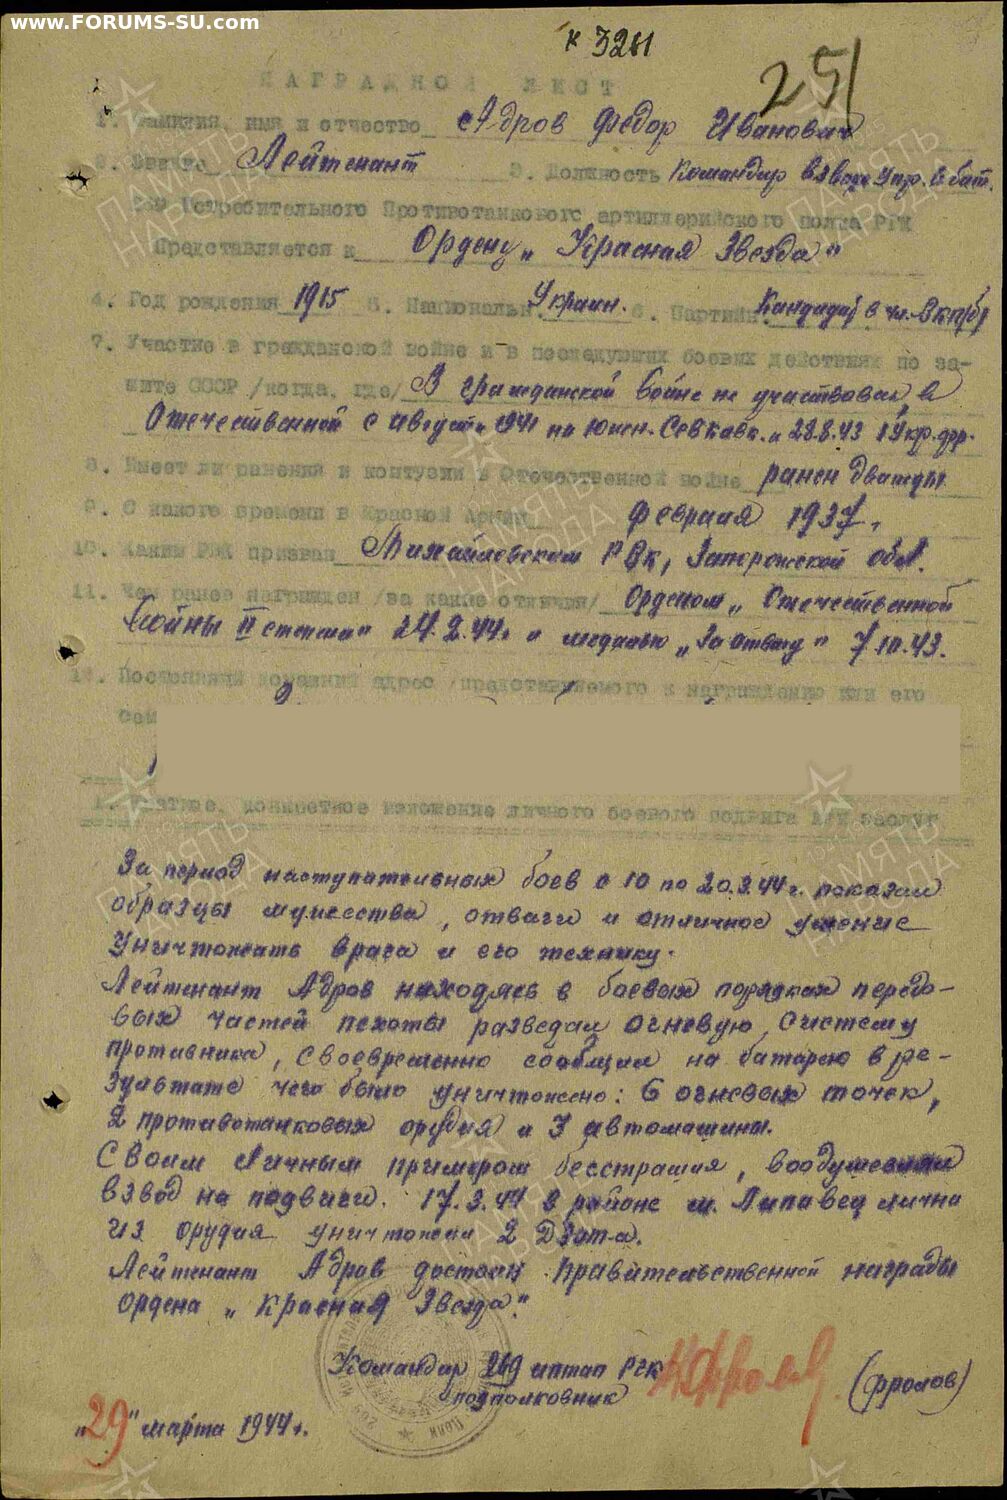 www.FORUMS-SU.com
к 3261
251
НАГРАДНОЙ ЛИСТ
1. Фамилия, имя и отчество Адров Федор Иванович
2. Звание Лейтенант 3. Должность Командир взвода Упр. 6 бат.
269 Истребительного Противотанкового артиллерийского полка РГК
Представляется к Ордену „Красная Звезда"
4. Год рождения 1915 5. Националь. Украин. 6. Партийн. Кандидат в чл. ВКП(б)
7. Участие в гражданской войне и в последующих боевых действиях по за-
щите СССР /когда, где/ В гражданской войне не участвовал в
Отечественной с августа 1941 на Южн. Сев Кавк. и 28.8.43 1 Укр. фр.
8. Имеет ли ранения и контузии в Отечественной войне ранен дважды
9. С какого времени в Красной Армии Февраля 1937 г.
10. Каким РВК призван Михайловским РВК, Запорожской обл.
11. Чем ранее награжден /за какие отличия/ Орденом „Отечественной
Войны II степени" 24.2.44г и медалью „За отвагу" 7.10.43.
12. Постоянный домашний адрес /представляемого к награждению или его
сем
1. Краткое, конкретное изложение личного боевого подвига или заслуг
За период наступательных боев с 10 по 20.3.44 г. показал
образцы мужества, отваги и отличное умение
уничтожать врага и его технику.
Лейтенант Адров находясь в боевых порядках передо-
вых частей пехоты разведал огневую систему
противника, своевременно сообщил на батарею в ре-
зультате чего было уничтожено: 6 огневых точек,
2 противотанковых орудия и 3 автомашины.
Своим личным примером бесстрашия, воодушевлял
взвод на подвиги. 17.3.44 в районе м. Липавец лично
из орудия уничтожил 2 Дзот-а.
Лейтенант Адров достоин правительственной награды
ордена „Красная Звезда".
Командир 269 иптап РГК
подполковник Фролов (Фролов)
„29" марта 1944 г.
ПАМЯТЬ НАРОДА